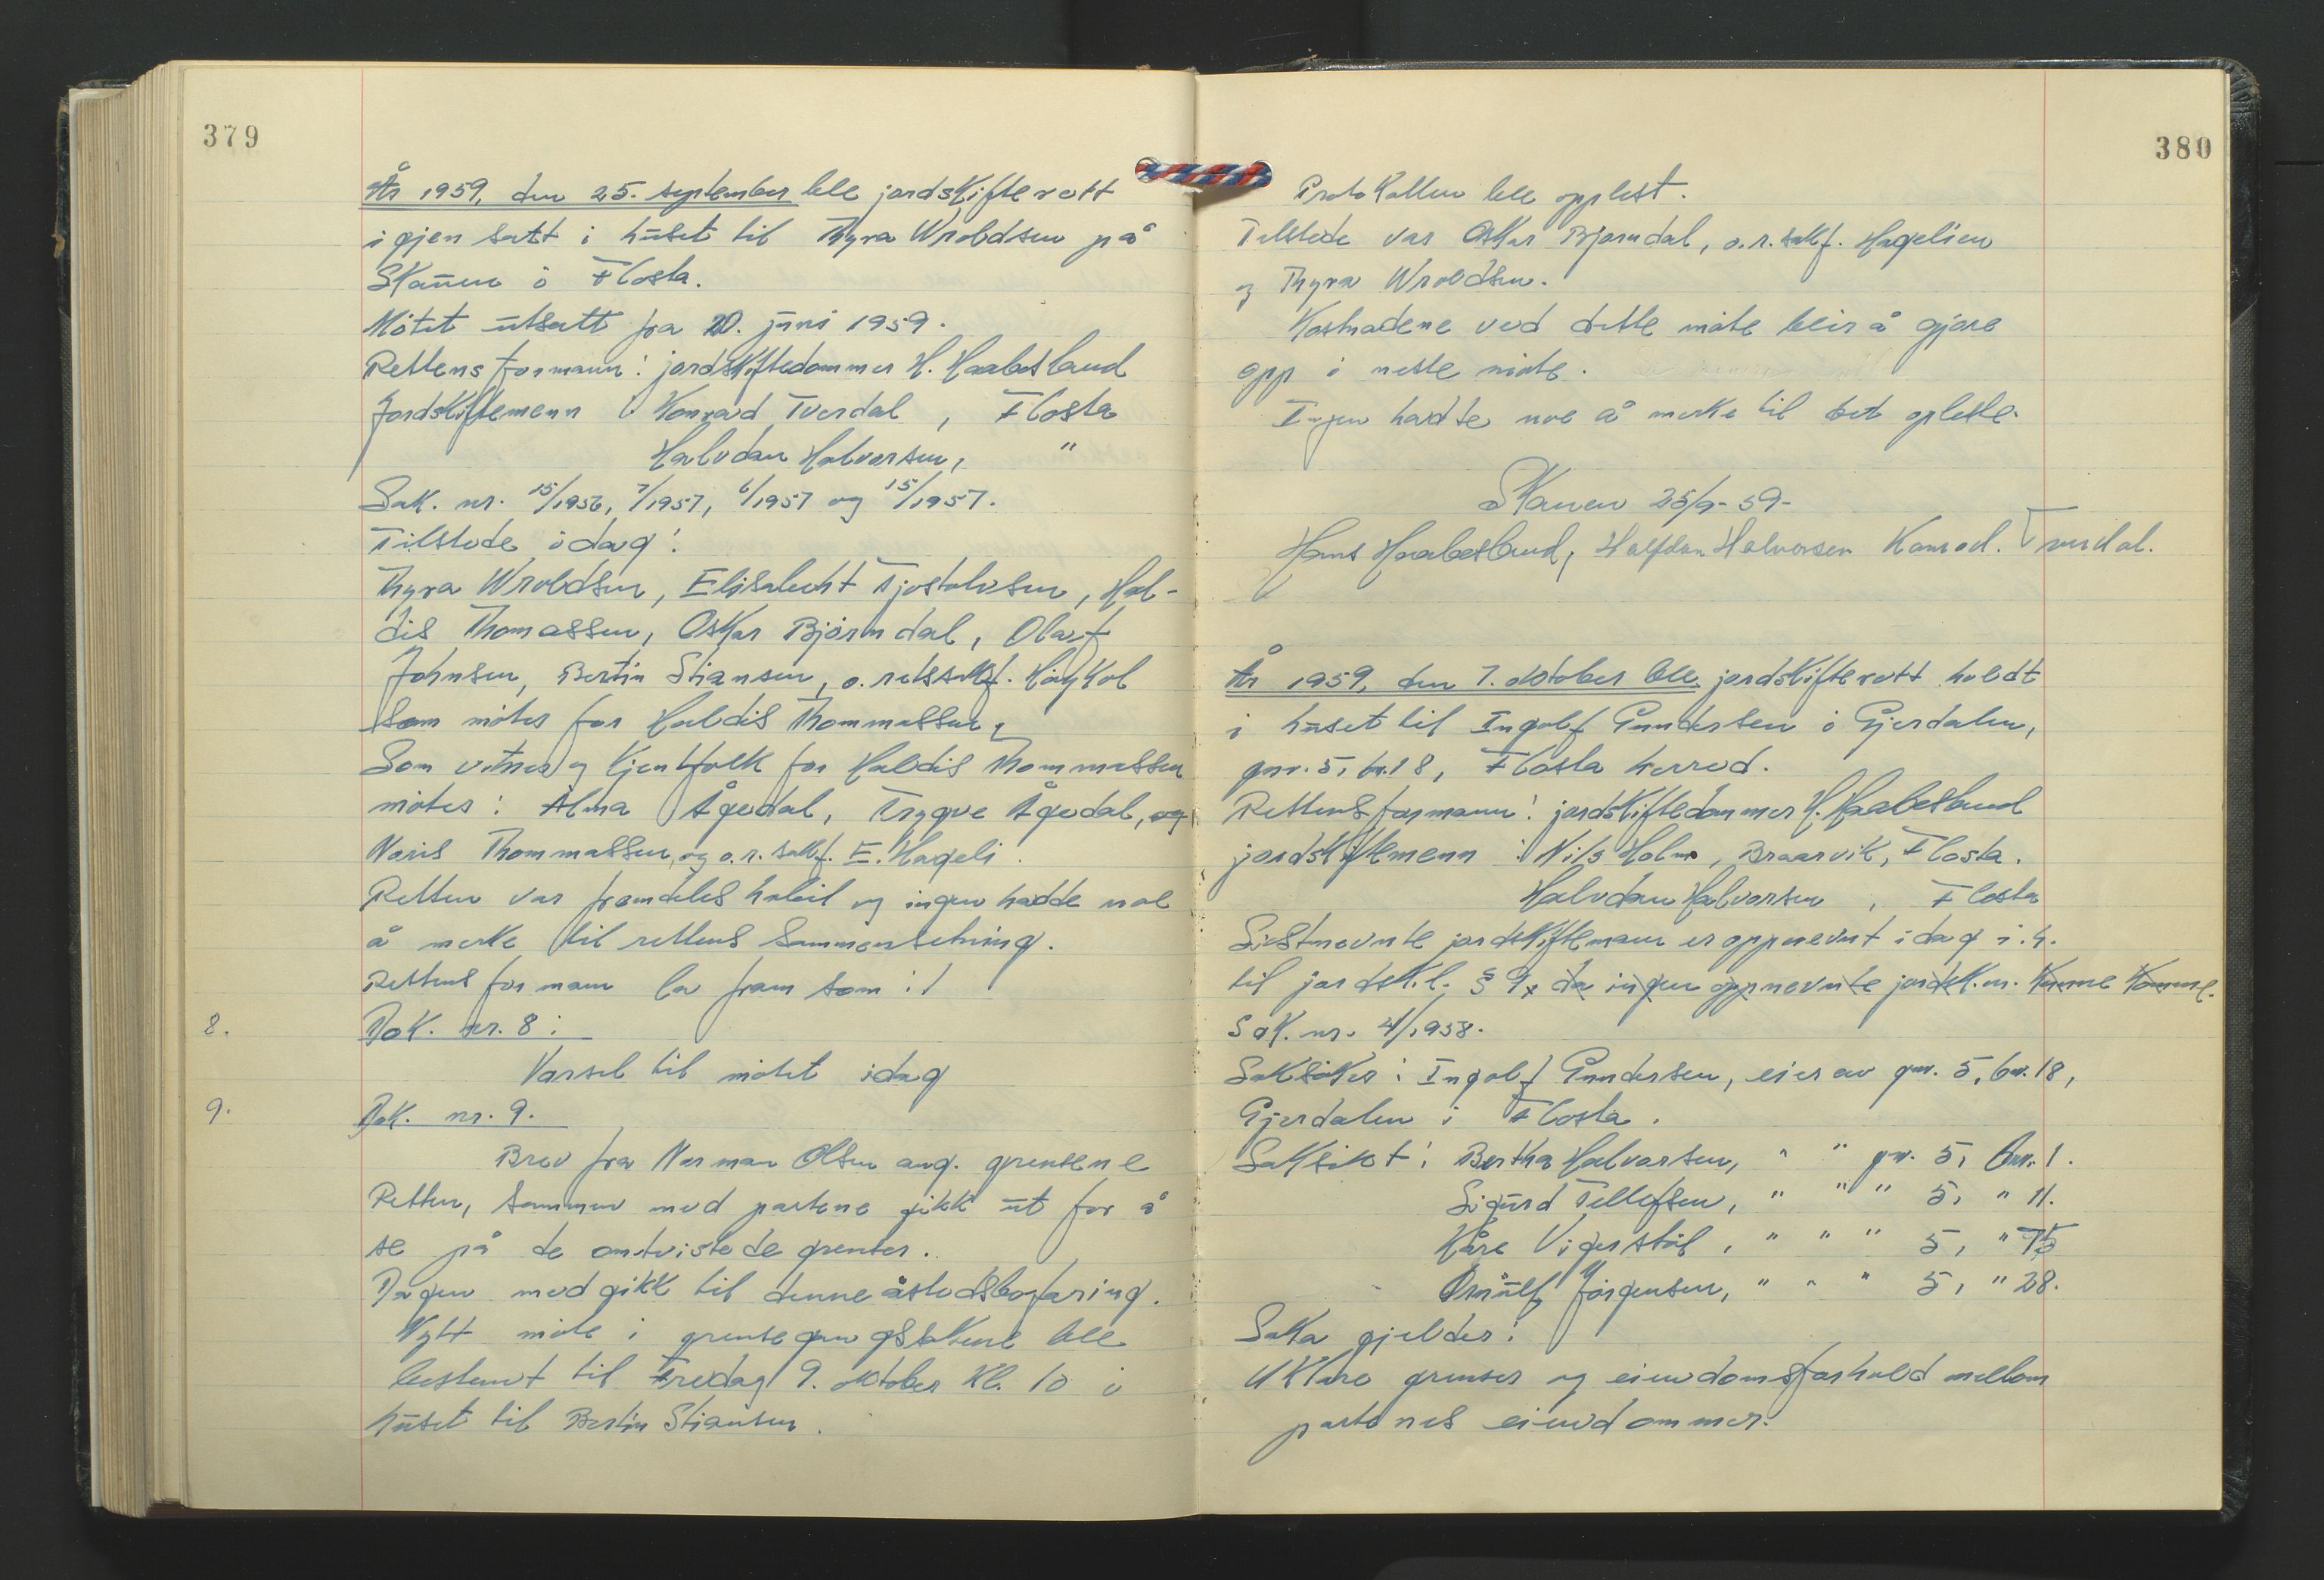 379
År 1959, den 25. september ble jordskifterett
igjen satt i huset til Thyra Wroldsen på
Skauen i Flosta.
Møtet utsatt fra 20. juni 1959.
Rettens formann: jordskiftedommer H. Haabesland
Jordskiftemenn: Konrad Tverdal, Flosta
Halvdan Halvorsen, "
Sak. nr. 15/1956, 7/1957, 6/1957 og 15/1957.
Tilstede idag:
Thyra Wroldsen, Elisabeht Tjostolvsen, Hal-
dis Thomassen, Oskar Bjørndal, Olaf
Johnsen, Bertin Stiansen, o.retssakf. Høykol
som møter for Haldis Thommassen,
Som vitner og kjentfolk for Haldis Thommassen
møter: Alma Ågedal, Trygve Ågedal, og
Noris Thommassen, og o.r.sakf. E. Hageli.
Retten var framdeles habil og ingen hadde noe
å merke til rettens sammensetning.
Rettens formann la fram som:
8. Dok. nr. 8:
Varsel til møtet idag
9. Dok. nr. 9.
Brev fra Norman Olsen ang. grensene
Retten, sammen med partene gikk ut for å
se på de omtvistede grenser.
Dagen medgikk til denne åstedsbefaring.
Nytt møte i grensegangssakene ble
bestemt til Fredag 9. oktober kl. 10 i
huset til Bertin Stiansen.
380
Protokollen ble opplest.
Tilstede var Oskar Bjørndal, o.r.sakf. Hagelien
og Thyra Wroldsen.
Kostnadene ved dette møte blir å gjøre
opp i neste møte.
Ingen hadde noe å merke til det opleste.
Skauen 25/9-59-
Hans Haabesland, Halfdan Halvorsen Konrad. Tverdal.
År 1959, den 7. oktober ble jordskifterett holdt
i huset til Ingolf Gundersen i Gjerdalen,
gnr. 5, br. 18, Flosta herred.
Rettens formann: jordskiftedommer H. Haabesland
jordskiftemenn: Nils Holm, Braarvik, Flosta.
Halvdan Halvorsen, Flosta
Sistnevnte jordskiftemann er oppnevnt idag i.h.
til jordsk.l. § 9, da ingen oppnevnte jordsk.m. kunne komme.
Sak. nr. 4/1958.
Saksøker: Ingolf Gundersen, eier av gnr. 5, bnr. 18,
Gjerdalen i Flosta.
Saksøkt: Bertha Halvorsen, " " gnr. 5, bnr. 1.
Sigurd Tellefsen, " " " 5, " 11.
Kåre Vigerstøl, " " " 5, " 75
Ørnulf Jørgensen, " " " 5, " 28.
Saka gjelder:
Uklare grenser og eiendomsforhold mellom
partenes eiendommer.